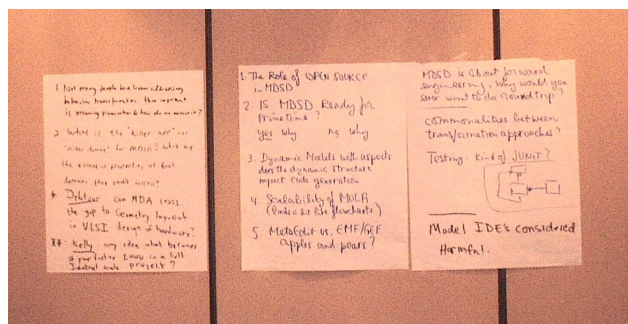 1. Not many people have been addressing
behavior transformation. How important
is meaning preservation & how do we ensure it?
2. What is the "killer app" or
"killer domain" for MDSD? What are
the essential properties of
domains that
* Detlour can MDA cross
the gap to Geometry layout
in VLSI design of hardware?
**: Kelly, any idea what becomes
if your factor 2000 in a full
Industrial scale project?
1. The Role of OPEN SOURCE
in MDSD
2 IS MDSD Ready for
Primetime?
Yes Why No Why
3. Dynamic Models with aspects
does the dynamic structure
impact code generation
4. Scalability of MOLA
(looks a bit like flowcharts)
5 MetaEdit vs. EMF/GEF
apples and pears?
MDSD is about forward
engineering, why would you
ever want to do roundtrip?
commonalities between
transformation approaches?
Testing: kind of JUNIT?
Model IDE's considered
Harmful.